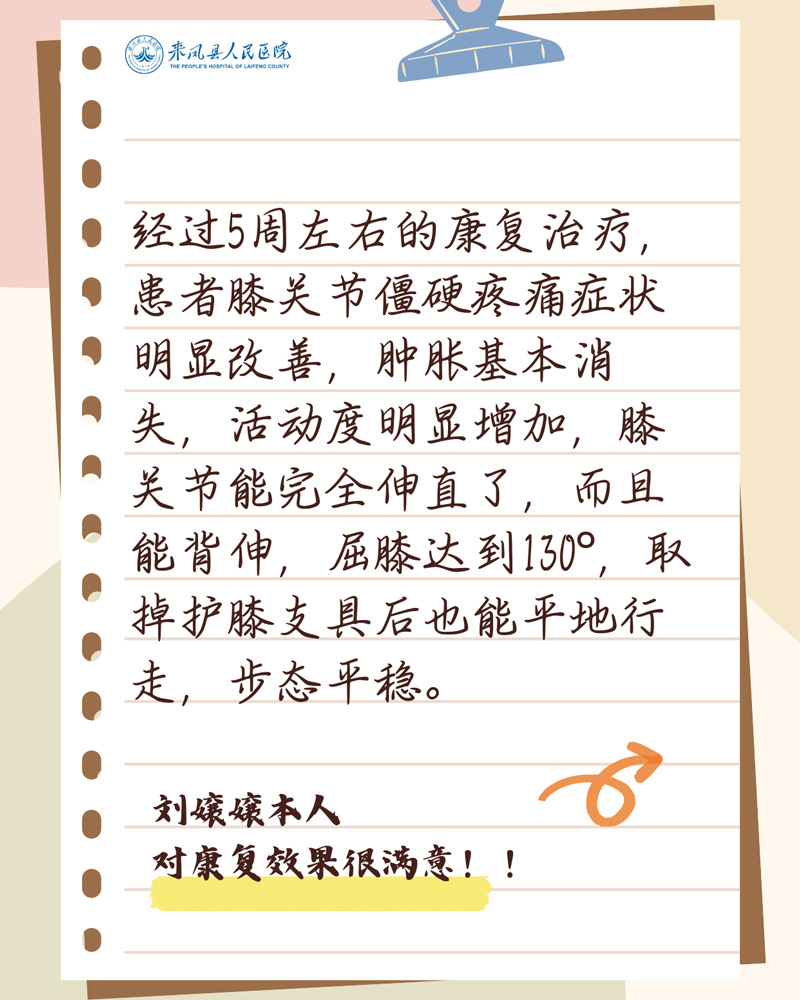 来凤县人民医院
THE PEOPLE'S HOSPITAL OF LAIFENG COUNTY
经过5周左右的康复治疗，
患者膝关节僵硬疼痛症状
明显改善，肿胀基本消
失，活动度明显增加，膝
关节能完全伸直了，而且
能背伸，屈膝达到130°，取
掉护膝支具后也能平地行
走，步态平稳。
刘嬢嬢本人
对康复效果很满意！！